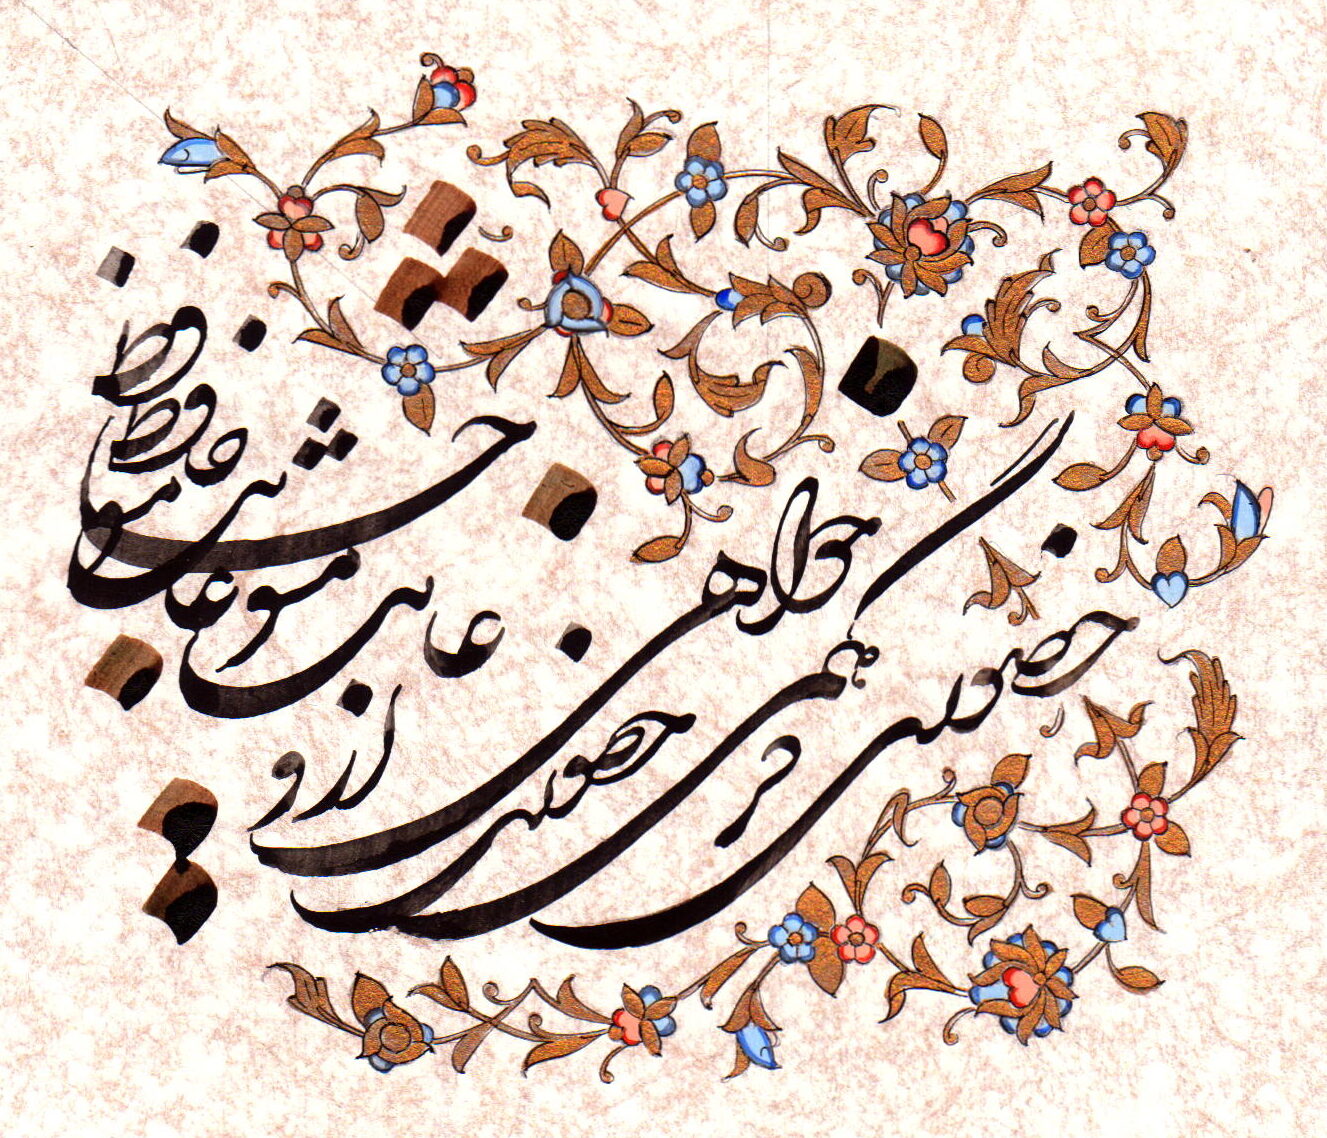 حضوری گر همی خواهی
ازو غایب مشو حافظ